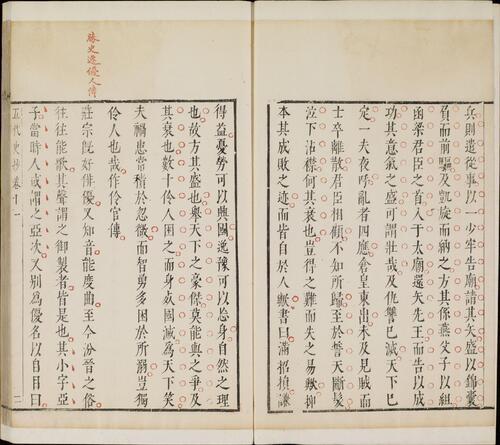 兵則遣從事以一少牢告廟請其矢盛以錦囊
負而前驅及凱旋而納之方其係燕父子以組
函梁君臣之首入于太廟還矢先王而告以成
功其意氣之盛可謂壯哉及仇讐已滅天下已
定一夫夜呼亂者四應倉皇東出未及見賊而
士卒離散君臣相顧不知所歸至於誓天斷髮
泣下沾襟何其衰也豈得之難而失之易歟抑
本其成敗之迹而皆自於人歟書曰滿招損謙
勝史遷優人傳
得益憂勞可以興國逸豫可以忘身自然之理
也故方其盛也舉天下之豪傑莫能與之爭及
其衰也數十伶人困之而身死國滅為天下笑
夫禍患常積於忽微而智勇多困於所溺豈獨
伶人也哉作伶官傳
莊宗既好俳優又知音能度曲至今汾晉之俗
往往能歌其聲謂之御製者皆是也其小字亞
子當時人或謂之亞次又別為優名以自目曰
五代史抄卷十一 二